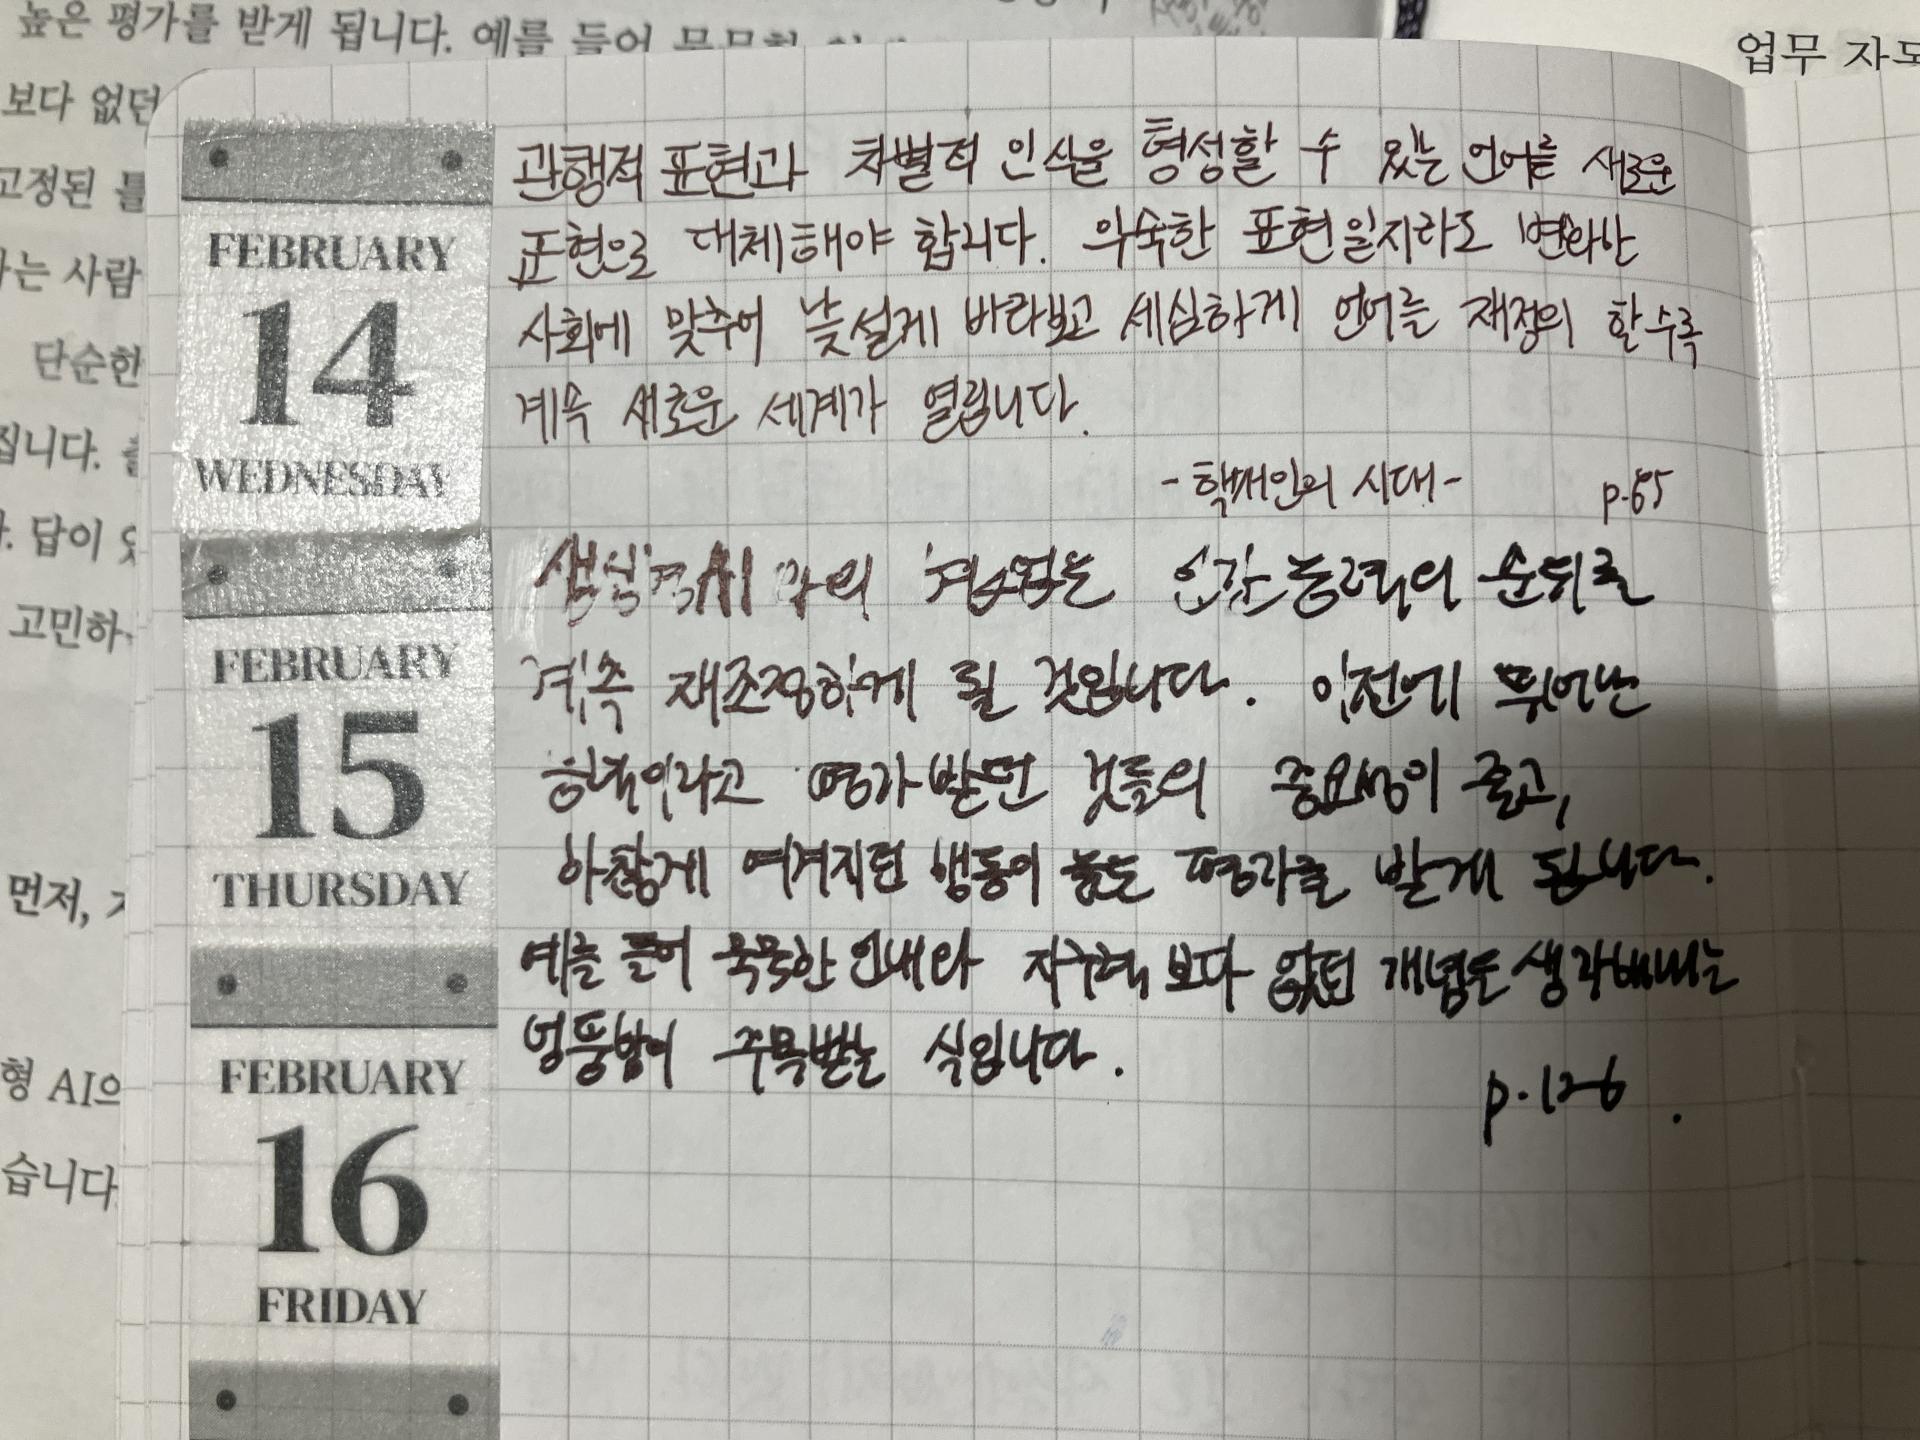 높은 평가를 받게 됩니다. 예를 들어 묵묵한
보다 없던
고정된 틀
는 사람
단순한
집니다.
답이
고민하
먼저,
형 AI의
습니다
업무 자도
FEBRUARY
14
WEDNESDAY
관행적 표현과 차별적 인식을 형성할 수 있는 언어를 새로운
표현으로 대체해야 합니다. 익숙한 표현일지라도 변화한
사회에 맞추어 낯설게 바라보고 세심하게 언어를 재정의 할수록
계속 새로운 세계가 열립니다.
- 핵개인의 시대 - p.65
FEBRUARY
15
THURSDAY
생성형AI 와의 협업은 인간 능력의 순위를
계속 재조정하게 될 것입니다. 이전에 뛰어난
능력이라고 평가 받던 것들의 중요성이 줄고,
하찮게 여겨지던 행동이 높은 평가를 받게 됩니다.
예를 들어 묵묵한 인내와 지구력 보다 없던 개념을 생각해내는
엉뚱함이 주목받는 식입니다.
p.126.
FEBRUARY
16
FRIDAY